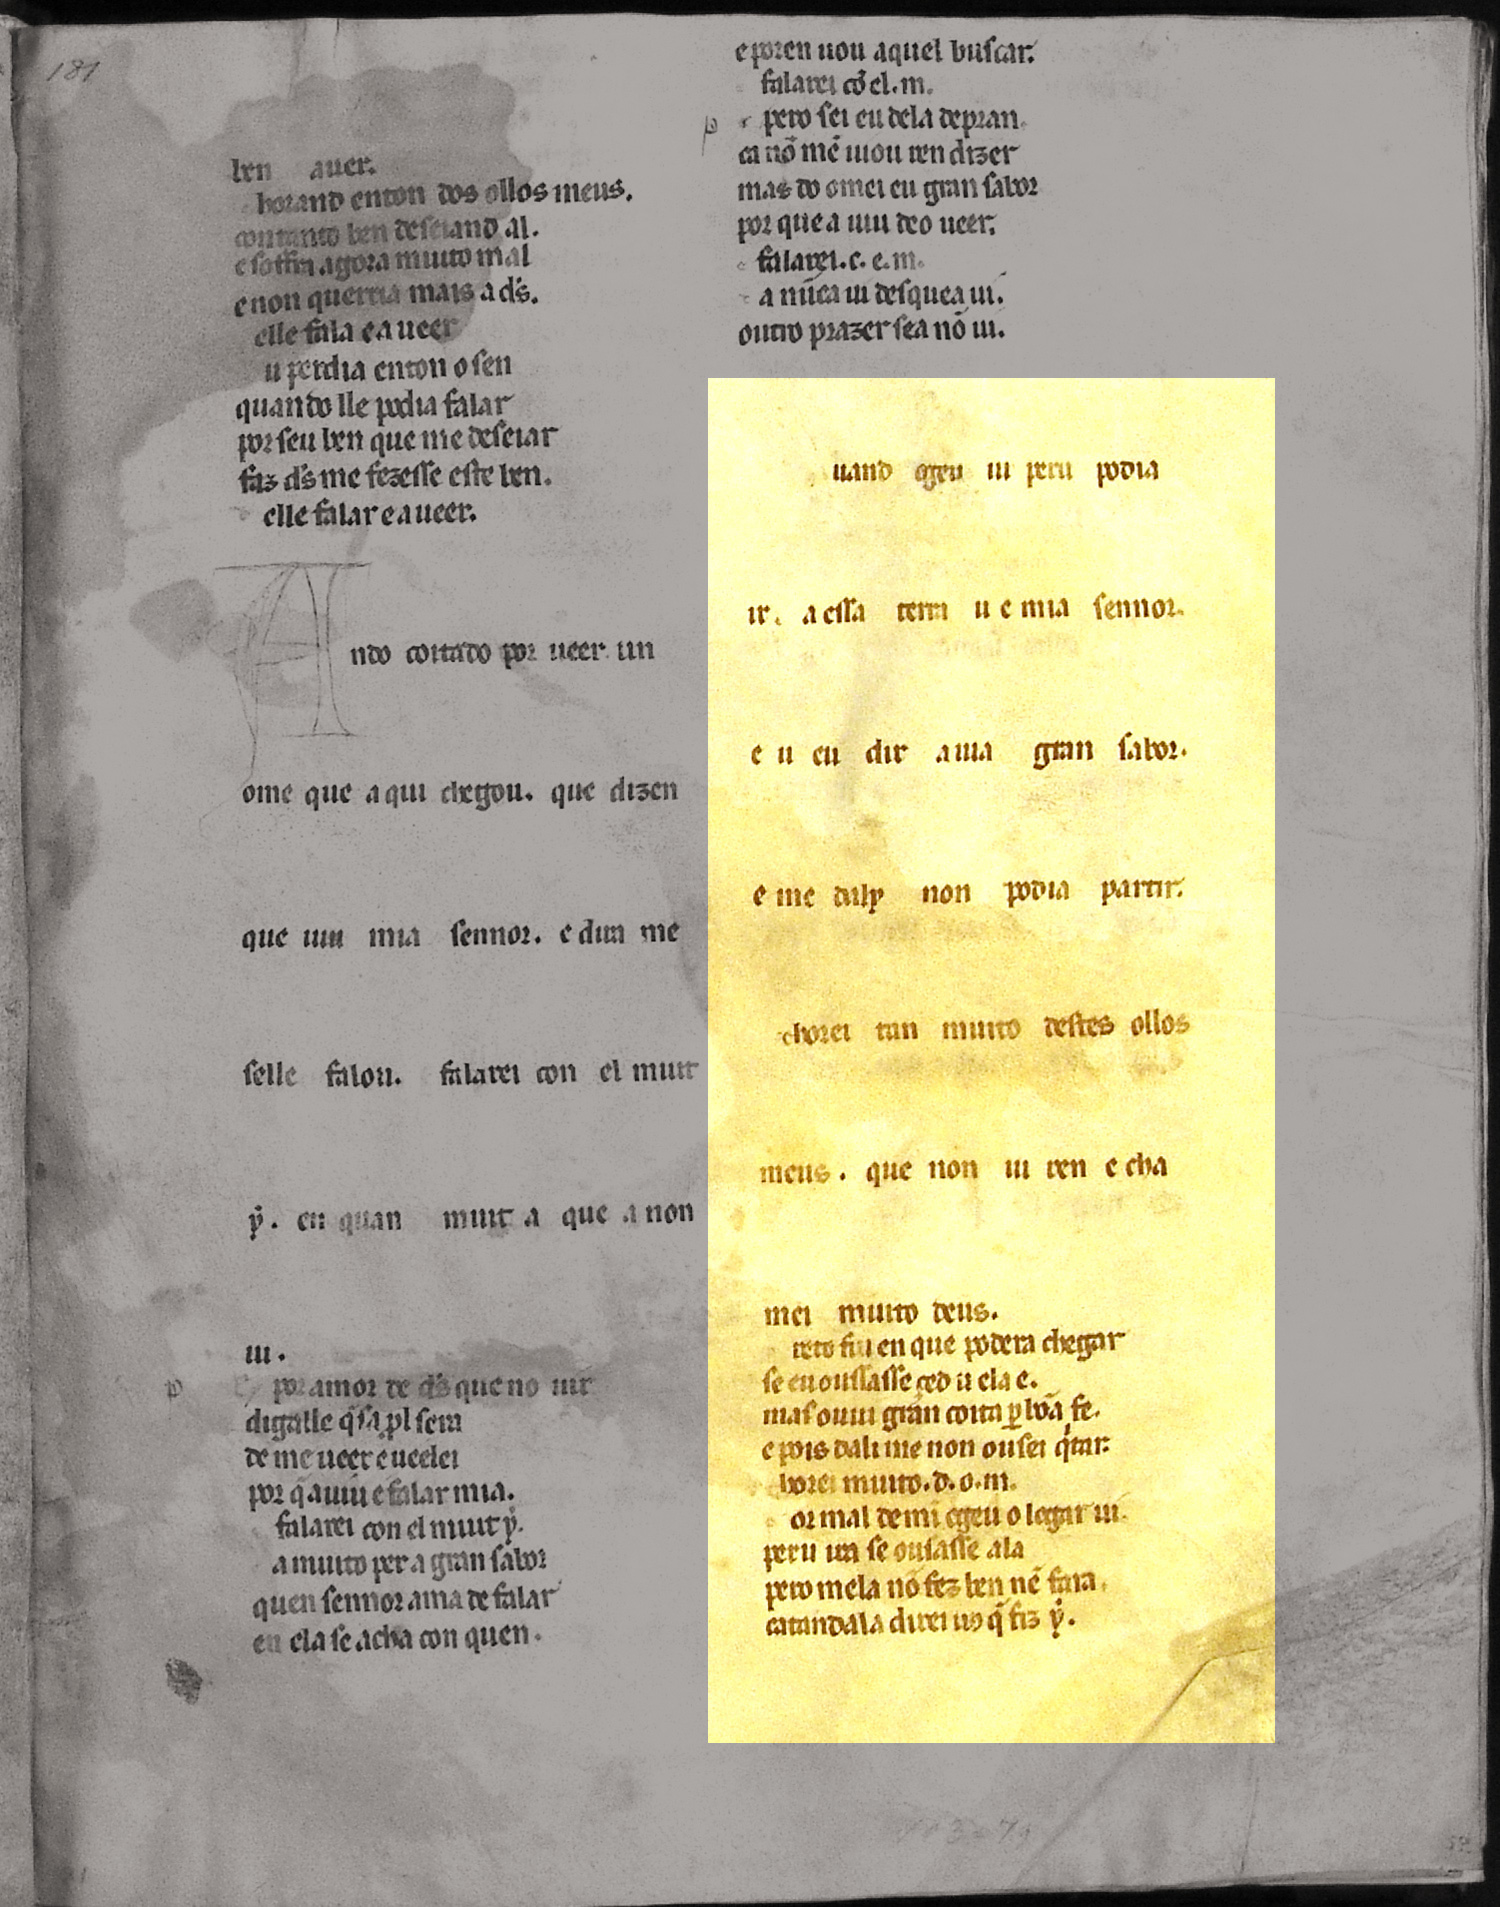 181
ben auer.
horand enton dos ollos meus.
contanto ben deseiand al.
e soffin agora muito mal
e non querria mais a ds̃.
elle fala e a ueer
u perdia enton o sen
quando lle podia falar
por seu ben que me deseiar
faz ds̃ me fezesse este ben.
elle falar e a ueer.
A ndo coitado por ueer un
ome que aqui chegou. que dizen
que uiu mia sennor. e dira me
selle falou. falarei con el muit
ẏ. en quan muit a que a non
ui.
por amor de ds̃ que no uir
digalle q̃
de me ueer e ueelei
por q̃ a uiu e falar mia.
falarei con el muit ẏ.
a muito per a gran sabor
quen sennor ama de falar
en ela se acha con quen.
e poren uou aquel buscar.
falarei cõ el. m.
p pero sei eu dela depran.
ca nõ mẽ uiou ren dizer
mas do omei eu gran sabor
por que a uiu deo ueer.
falarei. c. e. m.
a nũca ui desquea ui.
outro prazer sea nõ ui.
uand ogeu ui peru podia
ir. a essa terra u e mia sennor.
e u eu dir auia gran sabor.
e me daly non podia partir.
chorei tan muito destes ollos
meus. que non ui ren e cha
mei muito deus.
reto fui en que podera chegar
se eu oussasse ced u ela e.
mas ouui gran coita ꝑ bõa fe.
e pois dali me non ousei q̇tar.
horei muito. d. o. m.
or mal de mi ogeu o logar ui.
peru ira se ousasse ala
pero mela nõ fez ben nẽ fara.
catandala direi uꝯ q̃ fiz ẏ.